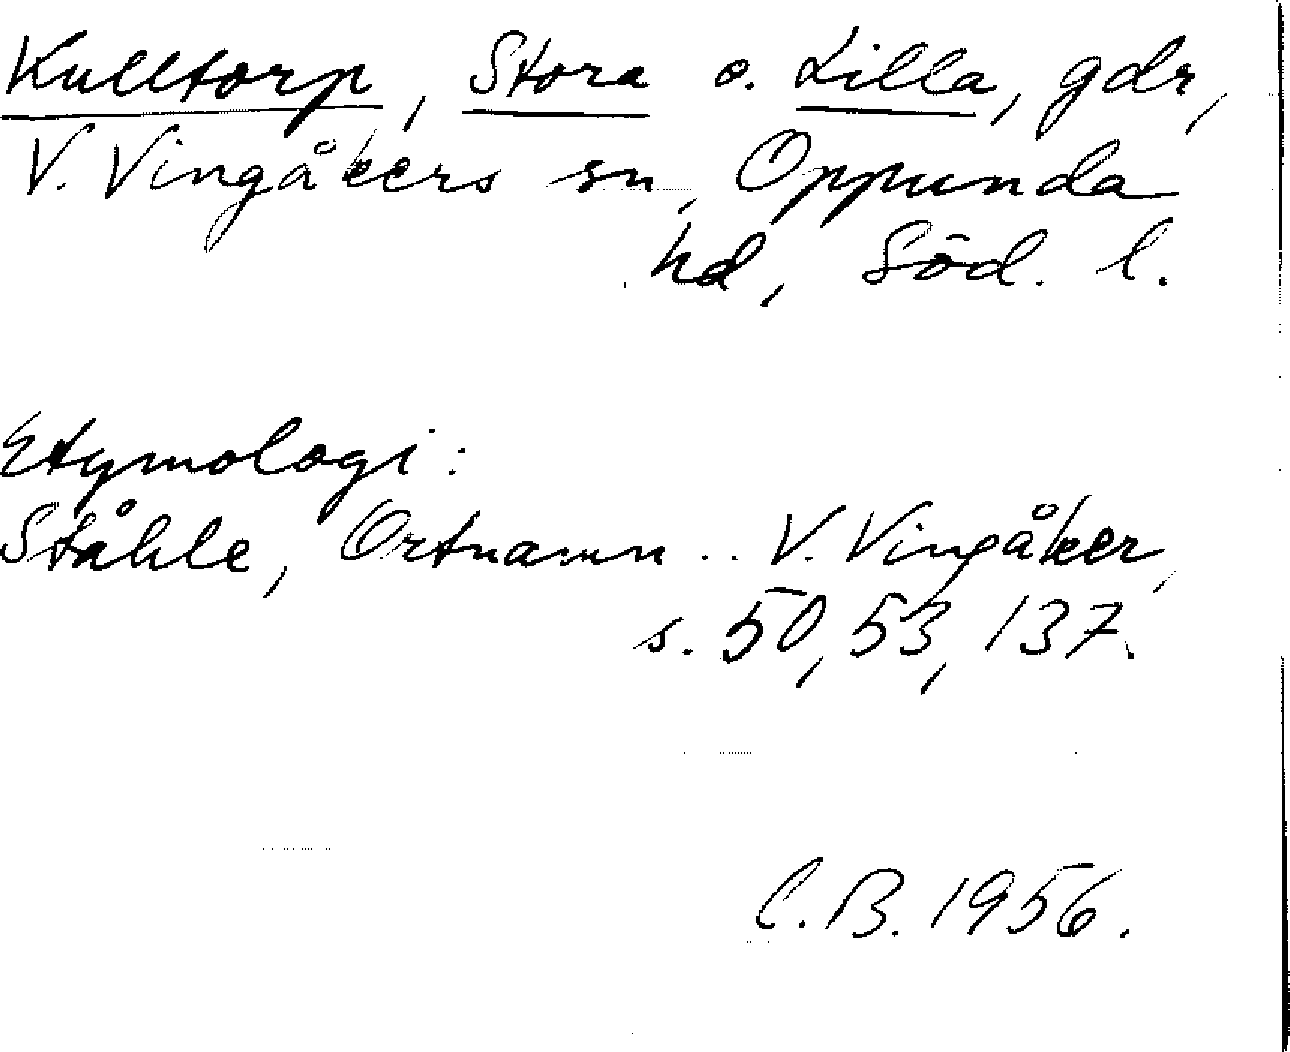 Kulltorp, Stora o. Lilla, gdr,
V. Vingåkers sn, Oppunda
hd, Söd. l.
Etymologi:
Ståhle, Ortnamn .. V. Vingåker,
s. 50, 53, 137.
C.B. 1956.